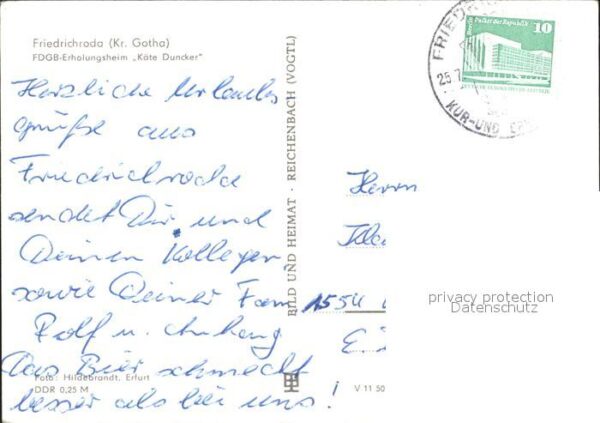 Friedrichroda (Kr. Gotha)
FDGB-Erholungsheim „Käte Duncker"
Herzliche Urlaubs
grüße aus
Friedrichroda
sendet Dir und
Deinen Kollegen
sowie Deiner Fam
Rolf u. Anhang
Das Bier schmeckt
besser als bei uns!
Foto: Hildebrandt, Erfurt
DDR 0,25 M
BILD UND HEIMAT · REICHENBACH (VOGTL)
V 11 50
Herrn
1554
privacy protection
Datenschutz
Palast der Republik
10
FRIED
25.7
KUR-UND